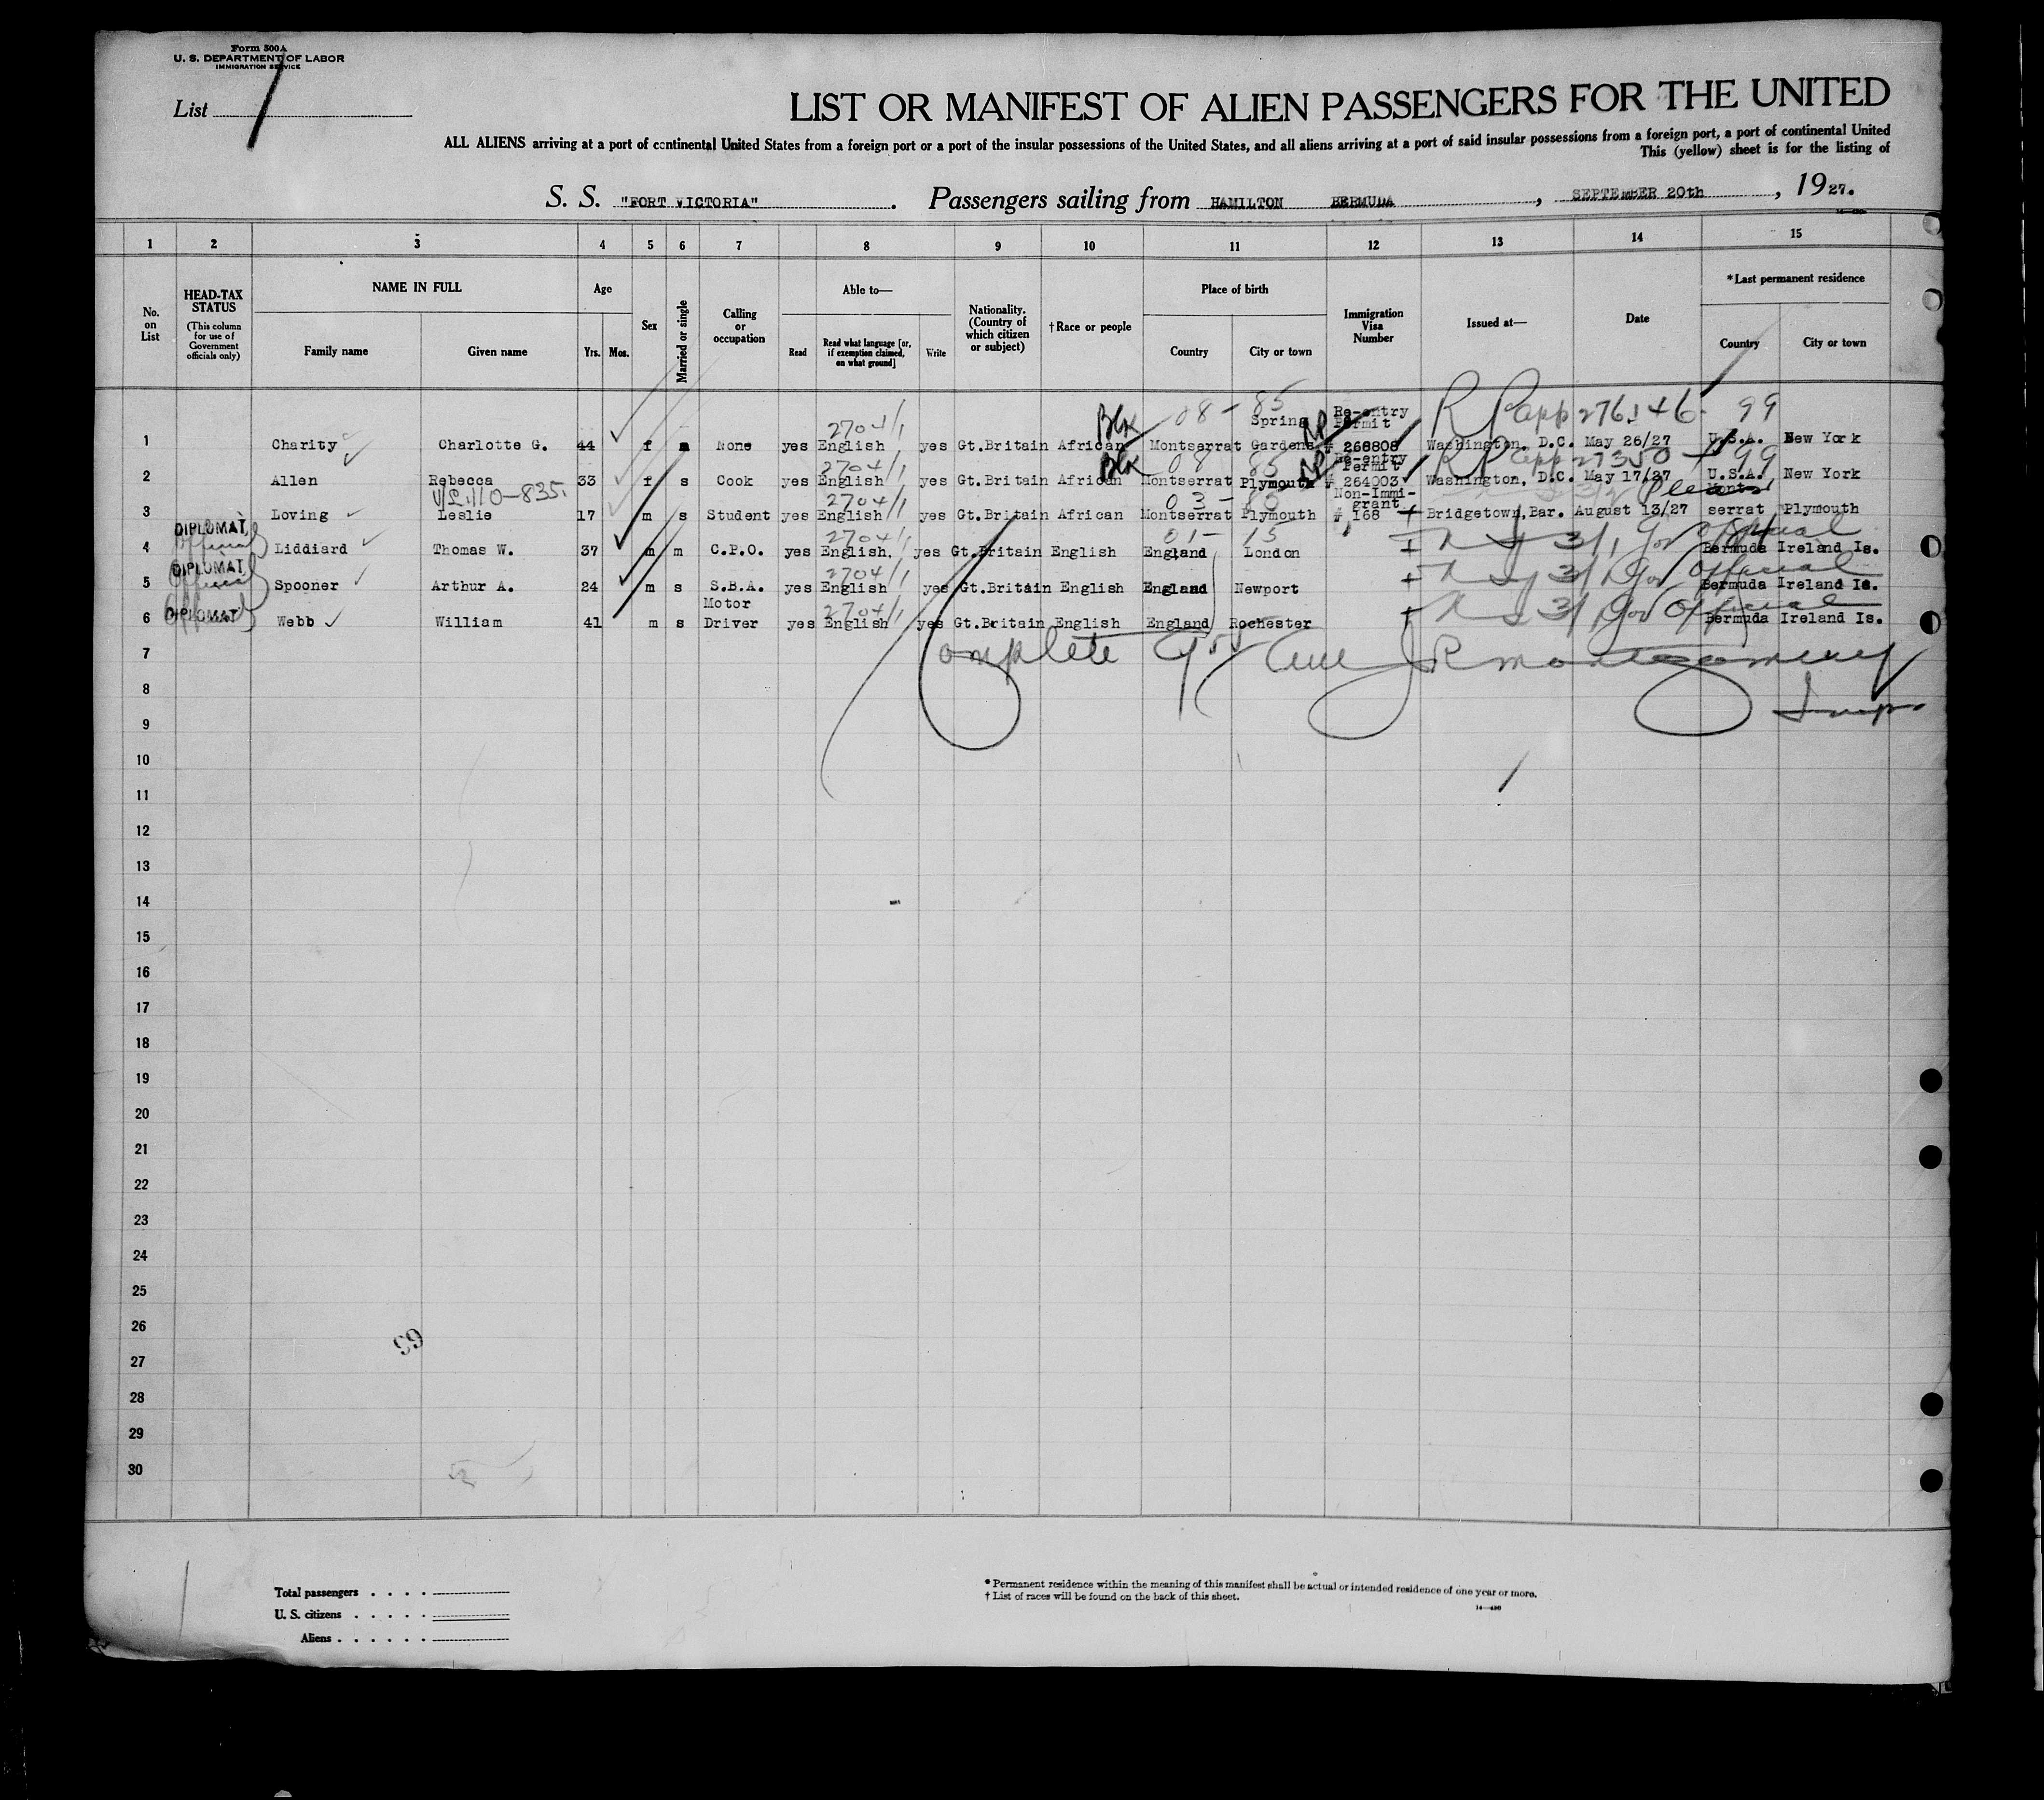 Form 500A
U. S. DEPARTMENT OF LABOR
IMMIGRATION SERVICE
List 1
LIST OR MANIFEST OF ALIEN PASSENGERS FOR THE UNITED
ALL ALIENS arriving at a port of continental United States from a foreign port or a port of the insular possessions of the United States, and all aliens arriving at a port of said insular possessions from a foreign port, a port of continental United
This (yellow) sheet is for the listing of
S. S. "FORT VICTORIA". Passengers sailing from HAMILTON BERMUDA, SEPTEMBER 20th, 1927.
1 2 3 4 5 6 7 8 9 10 11 12 13 14 15
No. on List
HEAD-TAX STATUS (This column for use of Government officials only)
NAME IN FULL
Family name Given name
Age
Yrs. Mos.
Sex
Married or single
Calling or occupation
Able to—
Read Read what language [or, if exemption claimed, on what ground] Write
Nationality. (Country of which citizen or subject)
†Race or people
Place of birth
Country City or town
Immigration Visa Number
Issued at—
Date
*Last permanent residence
Country City or town
Blk 08 - 85 RP app 276146 - 99
2704/1 Spring Re-entry Permit
1 Charity Charlotte G. 44 f m None yes English yes Gt.Britain African Montserrat Gardens # 268808 Washington, D.C. May 26/27 U.S.A. New York
2704/1 Blk 08 85 Re-entry Permit RP app 27350 99
2 Allen Rebecca 33 f s Cook yes English yes Gt.Britain African Montserrat Plymouth # 264003 Washington, D.C. May 17/27 U.S.A. New York
V/L 110-835. 2704/1 03 - 85 Non-Immigrant Mont-
3 Loving Leslie 17 m s Student yes English yes Gt.Britain African Montserrat Plymouth # 168 Bridgetown, Bar. August 13/27 serrat Plymouth
DIPLOMAT Official 2704/1 01 - 15 3/1 Gov Official
4 Liddiard Thomas W. 37 m m C.P.O. yes English yes Gt.Britain English England London Bermuda Ireland Is.
DIPLOMAT Official 2704/1 3/1 Gov Official
5 Spooner Arthur A. 24 m s S.B.A. yes English yes Gt.Britain English England Newport Bermuda Ireland Is.
DIPLOMAT Official Motor 2704/1 3/1 Gov Official
6 Webb William 41 m s Driver yes English yes Gt.Britain English England Rochester Bermuda Ireland Is.
7 Complete J R Montgomery
8
9 Insp.
10
11
12
13
14
15
16
17
18
19
20
21
22
23
24
25
26
63
27
28
29
30
Total passengers
U. S. citizens
Aliens
* Permanent residence within the meaning of this manifest shall be actual or intended residence of one year or more.
† List of races will be found on the back of this sheet.